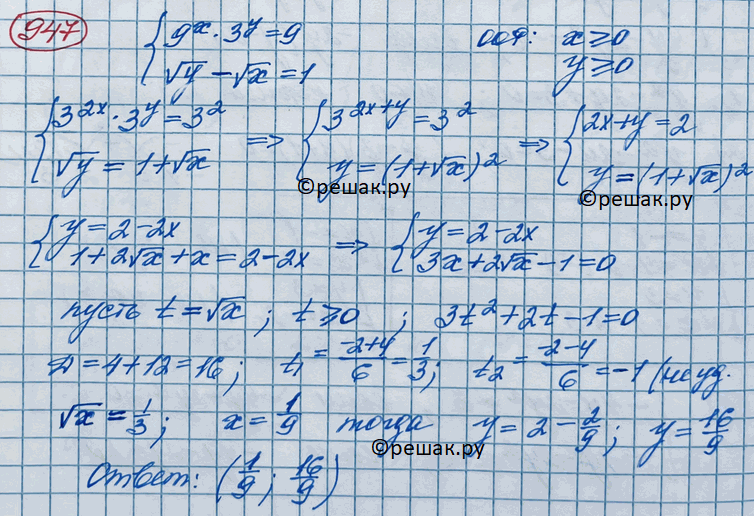 947 { 9^x · 3^y = 9 ООФ: x ⩾ 0
√y − √x = 1 y ⩾ 0
{ 3^{2x} · 3^y = 3^2 => { 3^{2x+y} = 3^2 => { 2x+y = 2
√y = 1+√x y = (1+√x)^2 y = (1+√x)^2
©решак.ру ©решак.ру
{ y = 2−2x => { y = 2−2x
1+2√x+x = 2−2x 3x+2√x−1=0
пусть t = √x ; t ⩾ 0 ; 3t^2+2t−1=0
D = 4+12 = 16 ; t_1 = (−2+4)/6 = 1/3 ; t_2 = (−2−4)/6 = −1 (не уд.
√x = 1/3 ; x = 1/9 тогда y = 2 − 2/9 ; y = 16/9
©решак.ру
Ответ: (1/9 ; 16/9)